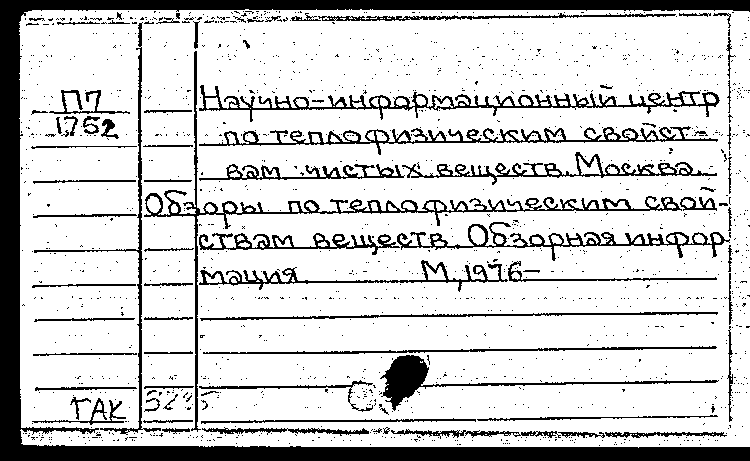 П7
1752
Научно-информационный центр
по теплофизическим свойст-
вам чистых веществ. Москва.
Обзоры по теплофизическим свой-
ствам веществ. Обзорная инфор
мация М, 1976-
ТАК